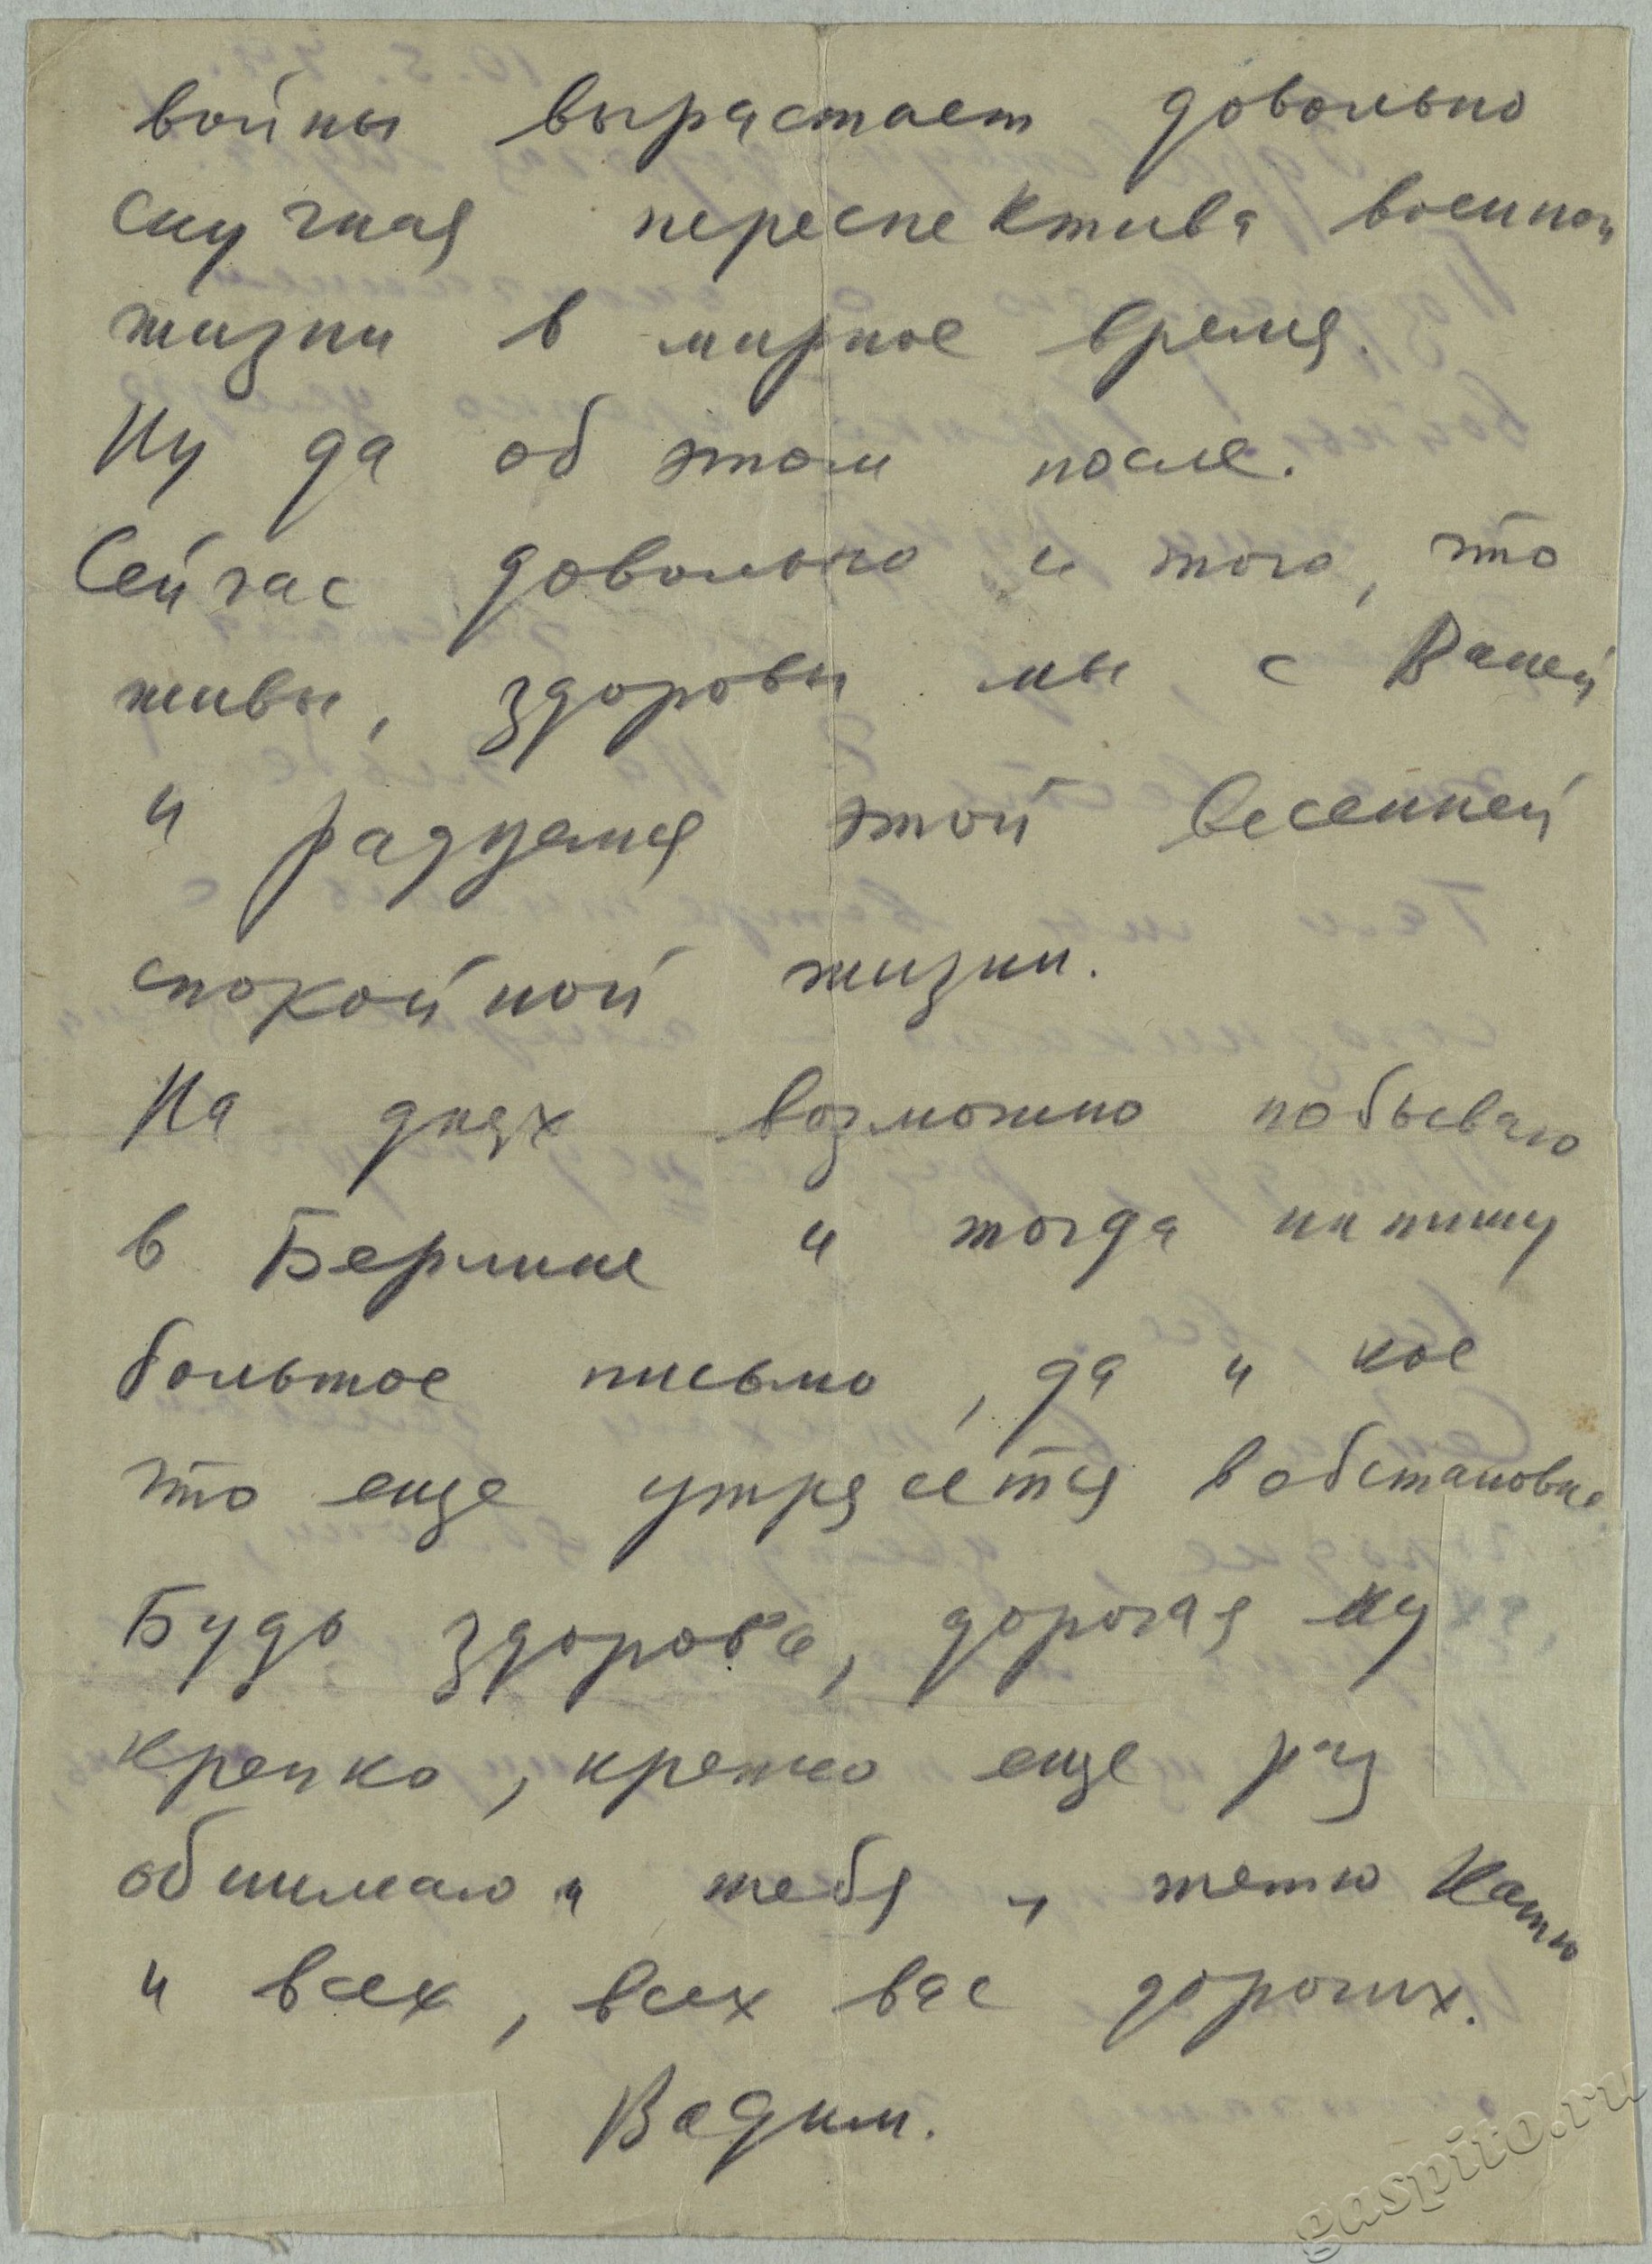 войны вырастает довольно
скучная переспектива военной
жизни в мирное время.
Ну да об этом после.
Сейчас довольно и того, что
живы, здоровы мы с Ваней
и радуемся этой весенней
спокойной жизни.
На днях возможно побываю
в Берлине и тогда напишу
большое письмо, да и кое
что еще утрясётся в обстановке.
Будь здорова, дорогая
крепко, крепко еще раз
обнимаю и тебя и тетю Катю
и всех, всех вас дорогих.
Вадим.
gaspito.ru